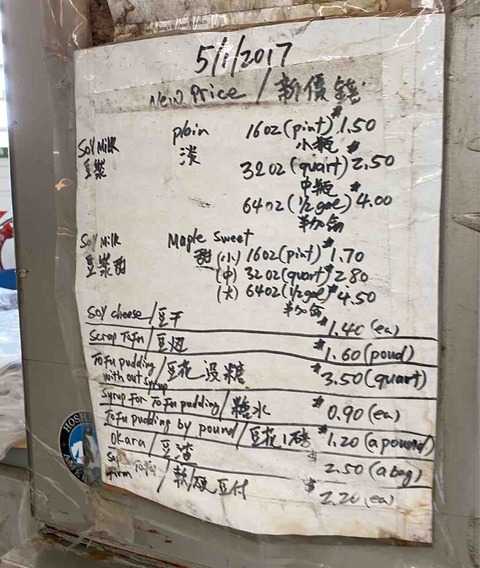 5/1/2017
New Price / 新價錢
Soy Milk plain 16oz (pint) $1.50
豆漿 淡 小瓶
32oz (quart) $2.50
中瓶
64oz (1/2 gal) $4.00
半加侖
Soy Milk Maple Sweet
豆漿甜 甜 (小) 16oz (pint) $1.70
(中) 32oz (quart) $2.80
(大) 64oz (1/2 gal) $4.50
半加侖
Soy cheese / 豆干 $1.40 (ea)
Scrap Tofu / 豆边 $1.60 (poud)
Tofu pudding without syrup / 豆花没糖 $3.50 (quart)
Syrup for Tofu pudding / 糖水 $0.90 (ea)
Tofu pudding by pound / 豆花1磅 $1.20 (a pound)
Okara / 豆渣 $2.50 (a bag)
Firm Tofu / 軟/硬豆付 $2.20 (ea)
HOSH